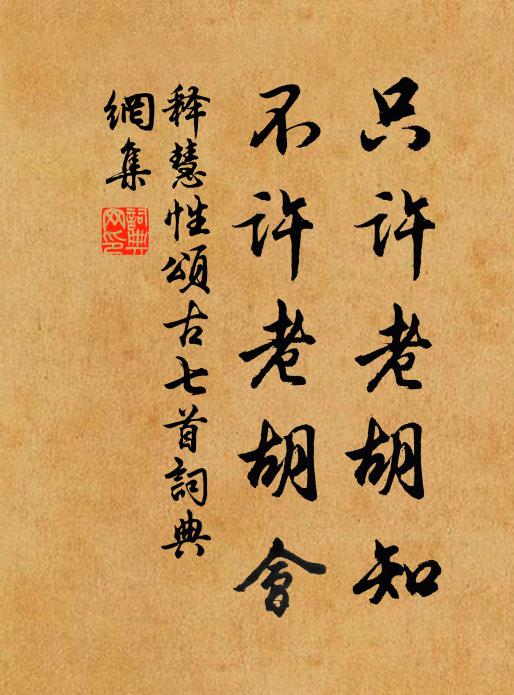 只许老胡知
不许老胡會
释慧性頌古七首詞典
網集
詞典
网印